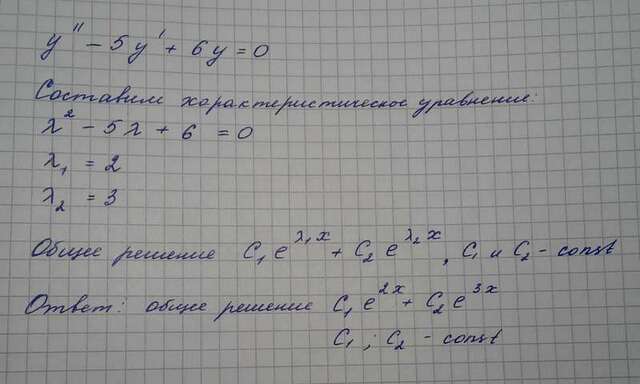 y'' - 5y' + 6y = 0
Составим характеристическое уравнение:
λ² - 5λ + 6 = 0
λ₁ = 2
λ₂ = 3
Общее решение C₁e^{λ₁x} + C₂e^{λ₂x}, C₁ и C₂ - const
Ответ: общее решение C₁e^{2x} + C₂e^{3x}
C₁; C₂ - const